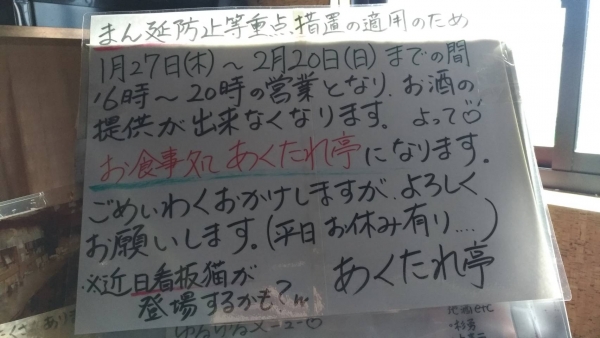 まん延防止等重点措置の適用のため
1月27日(木)～2月20日(日)までの間
16時～20時の営業となり、お酒の
提供が出来なくなります。よって
お食事処 あくたれ亭になります。
ごめいわくおかけしますが、よろしく
お願いします。(平日お休み有り....)
※近日看板猫が
登場するかも?
あくたれ亭